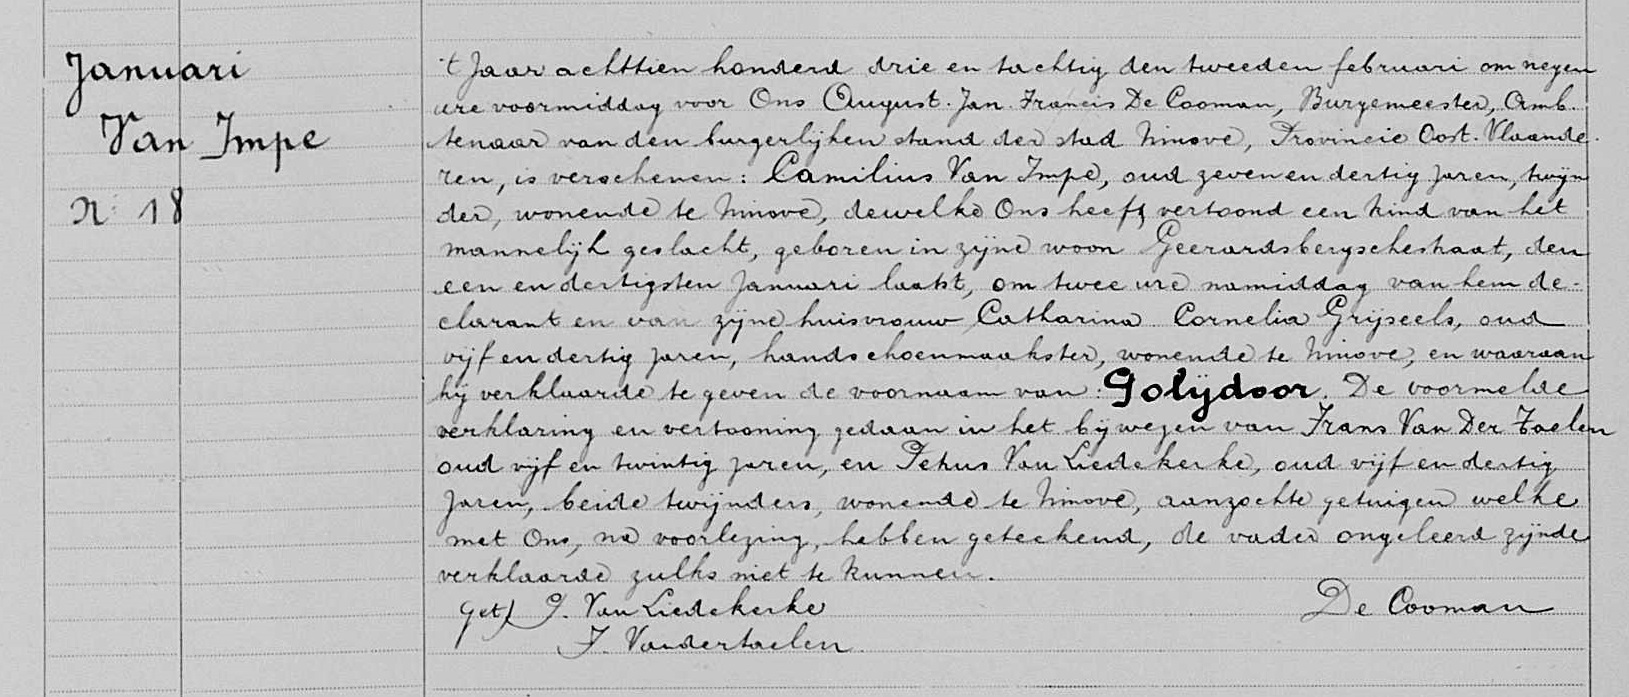 Januari
Van Impe
N. 18
't Jaar achttien honderd drie en tachtig den tweeden februari om negen
ure voormiddag voor Ons August. Jan Francis De Cooman, Burgemeester, Amb.
tenaar van den burgerlijken stand der stad Ninove, Provincie Oost-Vlaande-
ren, is verschenen: Camilius Van Impe, oud zeven en dertig jaren, twijn
der, wonende te Ninove, dewelke Ons heeft vertoond een kind van het
mannelijk geslacht, geboren in zijne woon Geerardsbergschestraat, den
een en dertigsten Januari laatst, om twee ure namiddag van hem de-
clarant en van zijne huisvrouw Catharina Cornelia Grijseels, oud
vijf en dertig jaren, handschoenmaakster, wonende te Ninove, en waaraan
hij verklaarde te geven de voornaam van: Polijdoor. De voormelde
verklaring en vertooning gedaan in het bijwezen van Frans Van Der Taelen
oud vijf en twintig jaren, en Petrus Van Liedekerke, oud vijf en dertig
jaren, beide twijnders, wonende te Ninove, aanzochte getuigen welke
met Ons, na voorlezing, hebben geteekend, de vader ongeleerd zijnde
verklaarde zulks niet te kunnen.
get) P. Van Liedekerke De Cooman
F. Vandertaelen